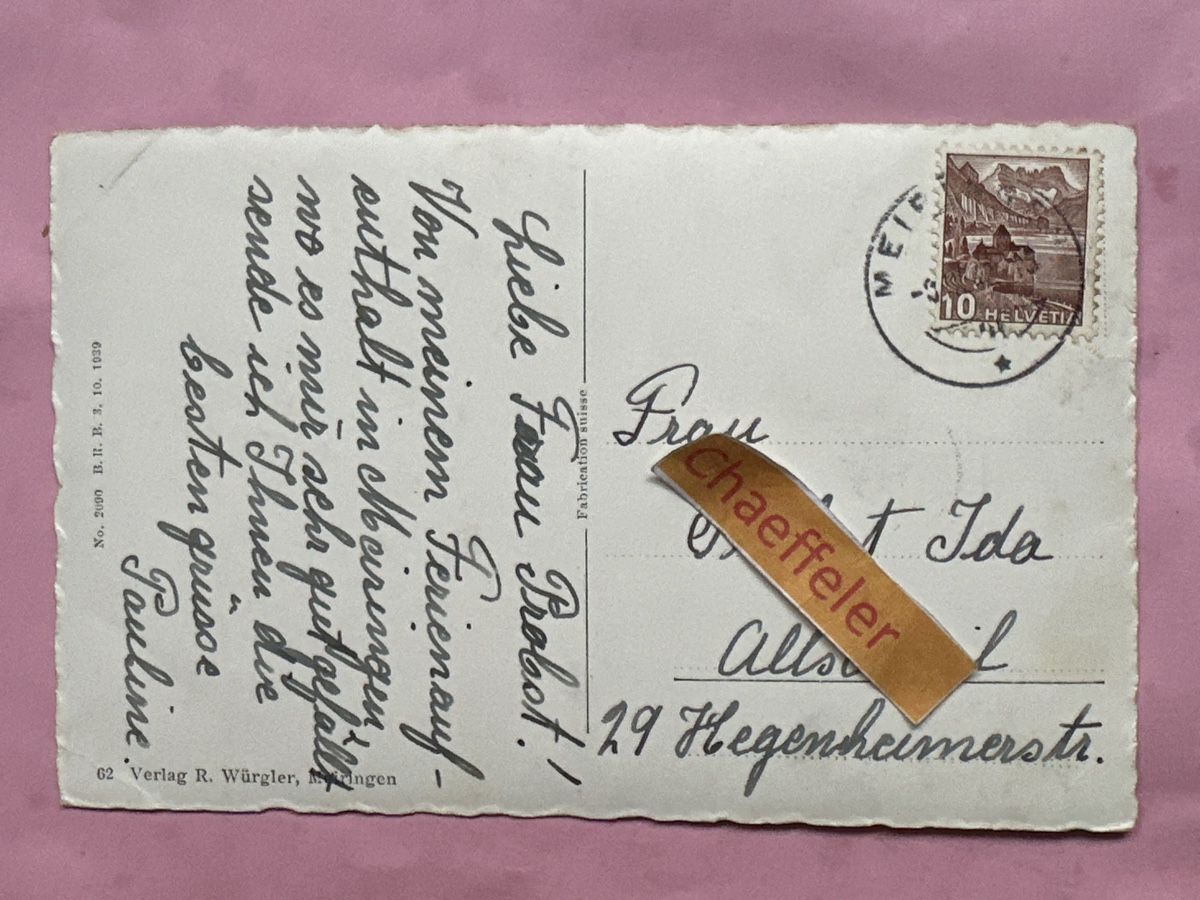 Liebe Frau Probst!
Von meinem Ferienauf-
enthalt in Meiringen,
wo es mir sehr gut gefällt
sende ich Ihnen die
besten grüsse
Pauline.
No. 2090 B.R.B. 3. 10. 1939
62 Verlag R. Würgler, Meiringen
Fabrication suisse
MEIR
10 HELVETIA
Frau
chaeffeler
t Ida
Alls l
29 Hegenheimerstr.